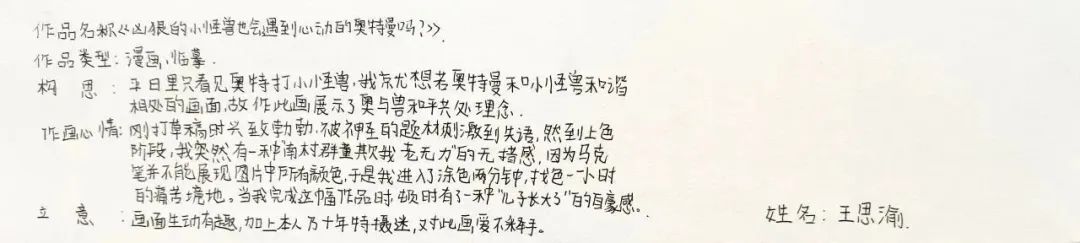 作品名称《凶狠的小怪兽也会遇到心动的奥特曼吗?》
作品类型:漫画,临摹.
构思:平日里只看见奥特打小小怪兽,我就想若奥特曼和小怪兽和谐
相处的画面,故作此画展示了奥与兽和平共处理念.
作画心情:刚打草稿时兴致勃勃,被神圣的题材刺激到失语,然到上色
阶段,我突然有一种"南村群童欺我老无力"的无措感,因为马克
笔并不能展现图片中所有颜色,于是我进入了涂色两分钟,找色一小时
的痛苦境地。当我完成这幅作品时顿时有了一种"儿子长大了"的自豪感。
立意:画面生动有趣,加上本人乃十年特摄迷,对此画爱不释手。
姓名:王思渝.